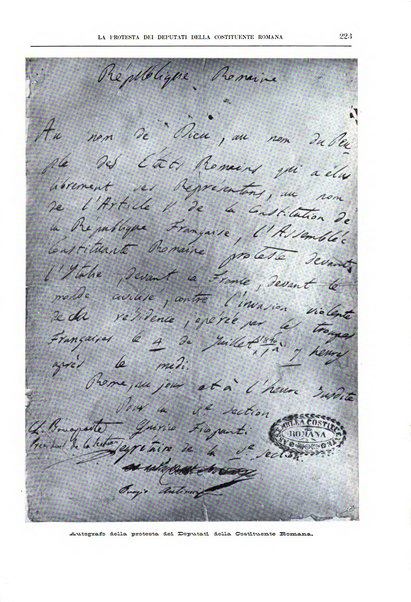 LA PROTESTA DEI DEPUTATI DELLA COSTITUENTE ROMANA 223
République Romaine
Au nom de Dieu, au nom du Peu-
ple des États Romains qui a élu
librement ses Représentans, au nom
de l'Article V de la Constitution de
la République Française, l'Assemblée
Constituante Romaine proteste devant
l'Italie, devant la France, devant le
monde civilisé, contre l'invasion violente
de sa résidence, opérée par les troupes
Françaises le 4 de Juillet 1849 à 7 heures
après le midi.
Rome, au jour et à l'heure susdite
Pour la Ve section
Ch. Bonaparte
Président de la Section
Secrétaire de la Ve
Section
ROMANA
Autografo della protesta dei Deputati della Costituente Romana.